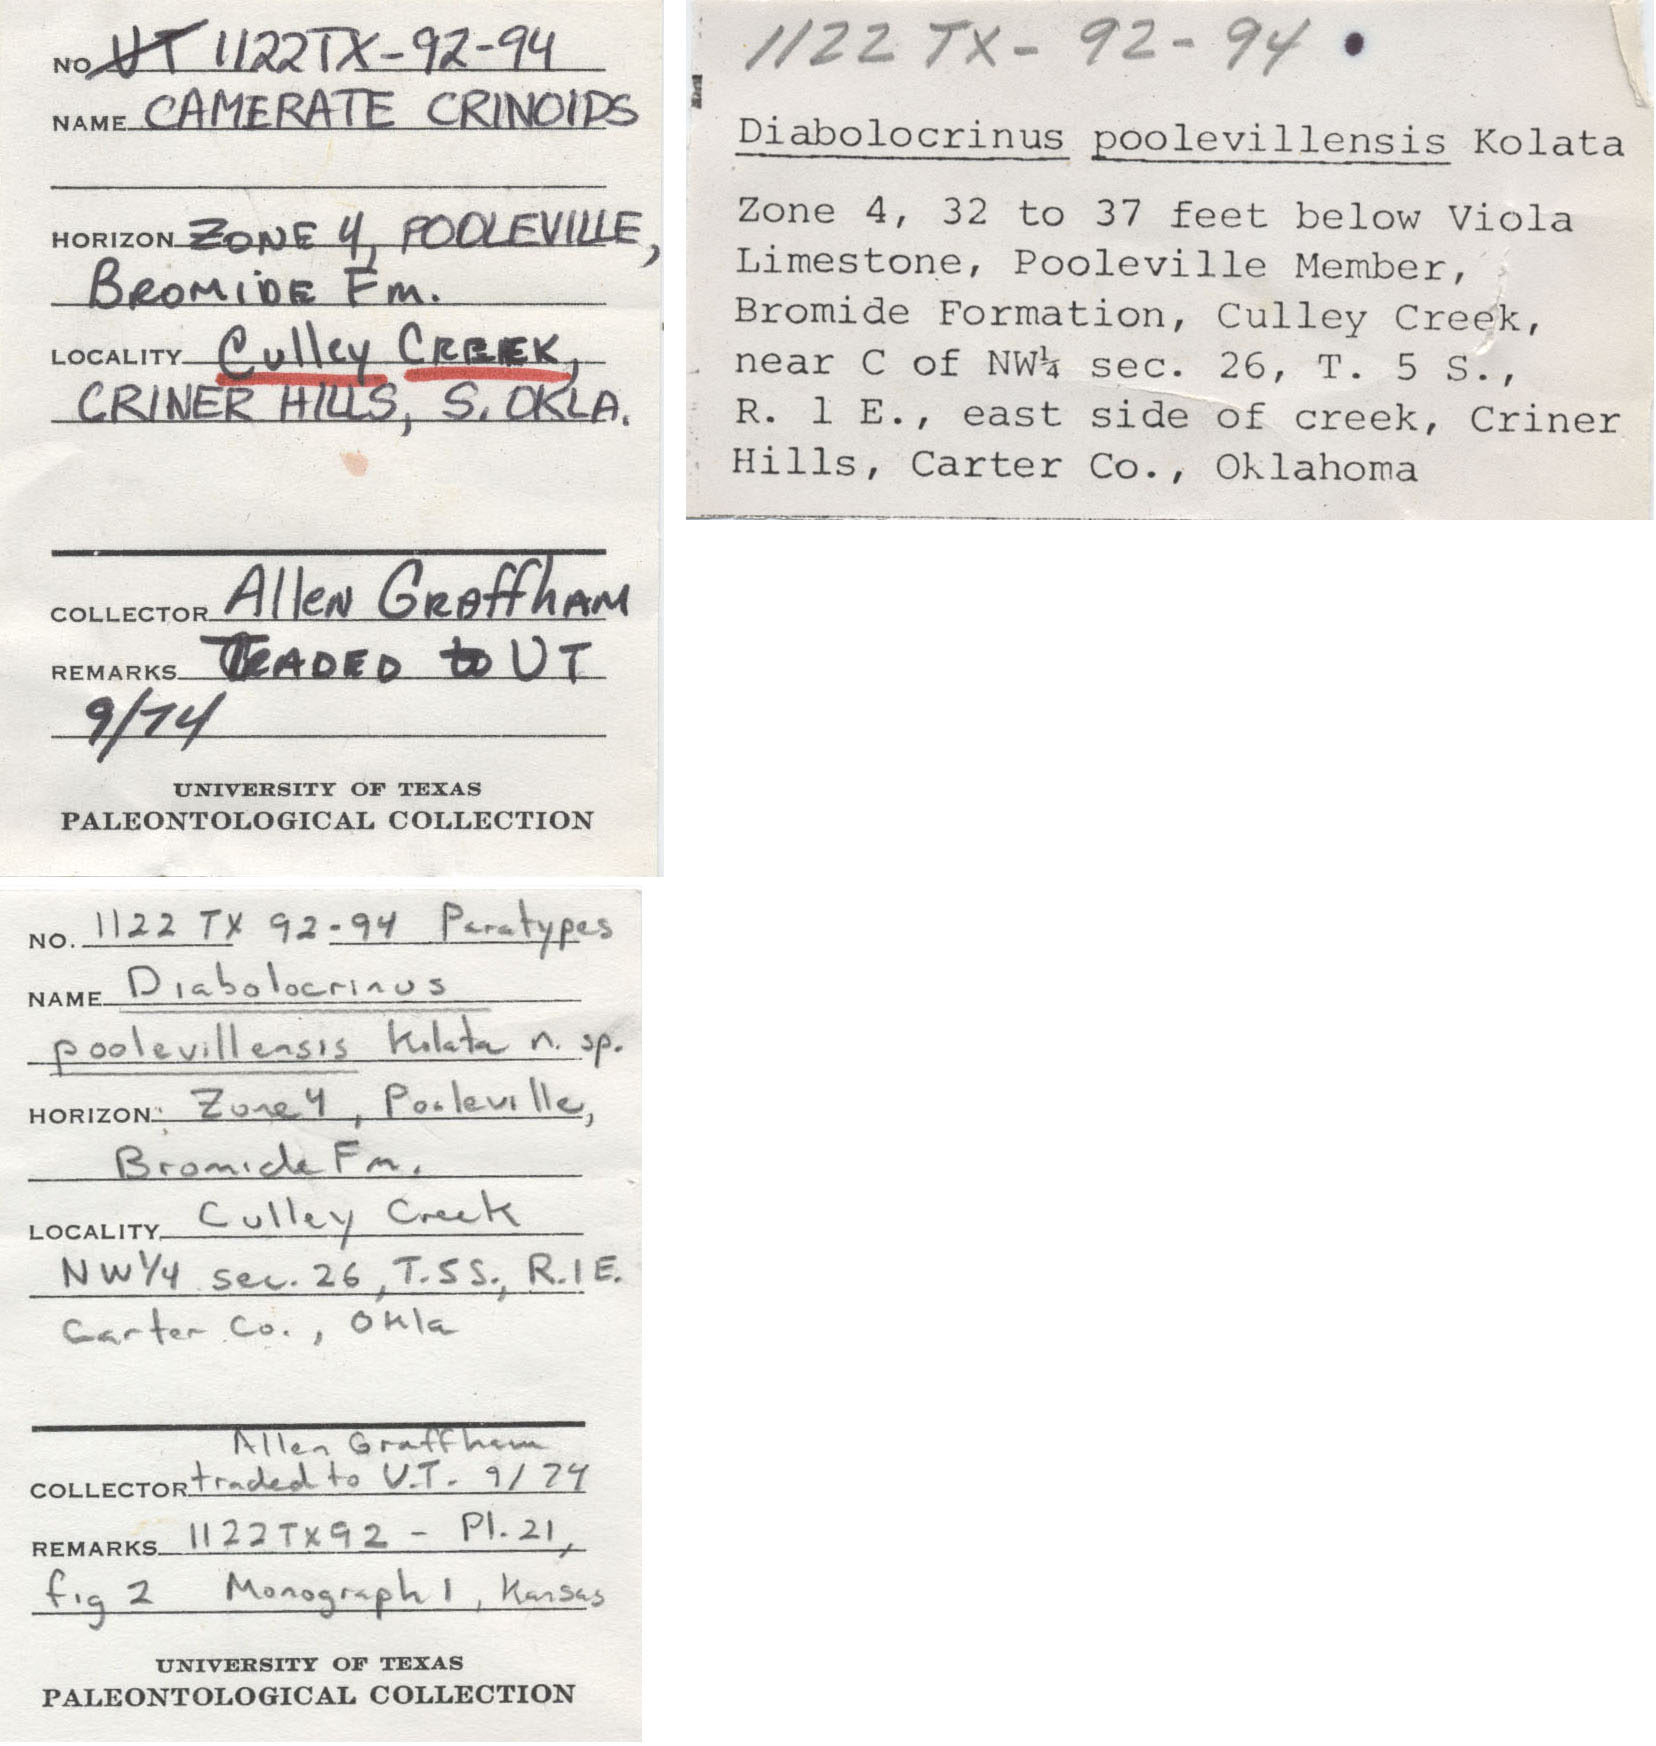 NO. UT 1122TX-92-94
NAME CAMERATE CRINOIDS
HORIZON ZONE 4, POOLEVILLE,
BROMIDE Fm.
LOCALITY Culley CREEK,
CRINER HILLS, S. OKLA.
COLLECTOR Allen GRAffhAM
REMARKS TRADED to UT
9/74
UNIVERSITY OF TEXAS
PALEONTOLOGICAL COLLECTION
1122 TX- 92-94
Diabolocrinus poolevillensis Kolata
Zone 4, 32 to 37 feet below Viola
Limestone, Pooleville Member,
Bromide Formation, Culley Creek,
near C of NW¼ sec. 26, T. 5 S.,
R. 1 E., east side of creek, Criner
Hills, Carter Co., Oklahoma
NO. 1122 TX 92-94 Paratypes
NAME Diabolocrinus
poolevillensis Kolata n. sp.
HORIZON Zone 4, Pooleville,
Bromide Fm.
LOCALITY Culley Creek
NW 1/4 sec. 26, T. 5 S., R. 1 E.
Carter Co., Okla
Allen Graffham
COLLECTOR traded to U.T. 9/74
REMARKS 1122TX92 - Pl. 21,
fig 2 Monograph 1, Kansas
UNIVERSITY OF TEXAS
PALEONTOLOGICAL COLLECTION